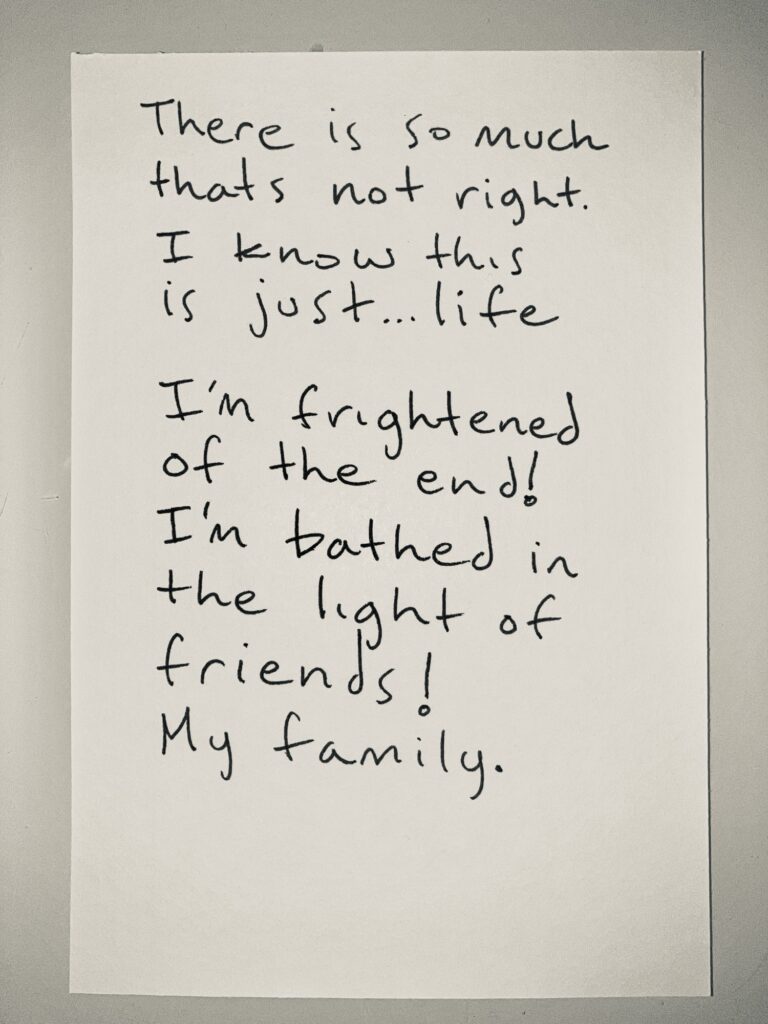 There is so much
thats not right.
I know this
is just...life
I'm frightened
of the end!
I'm bathed in
the light of
friends!
My family.